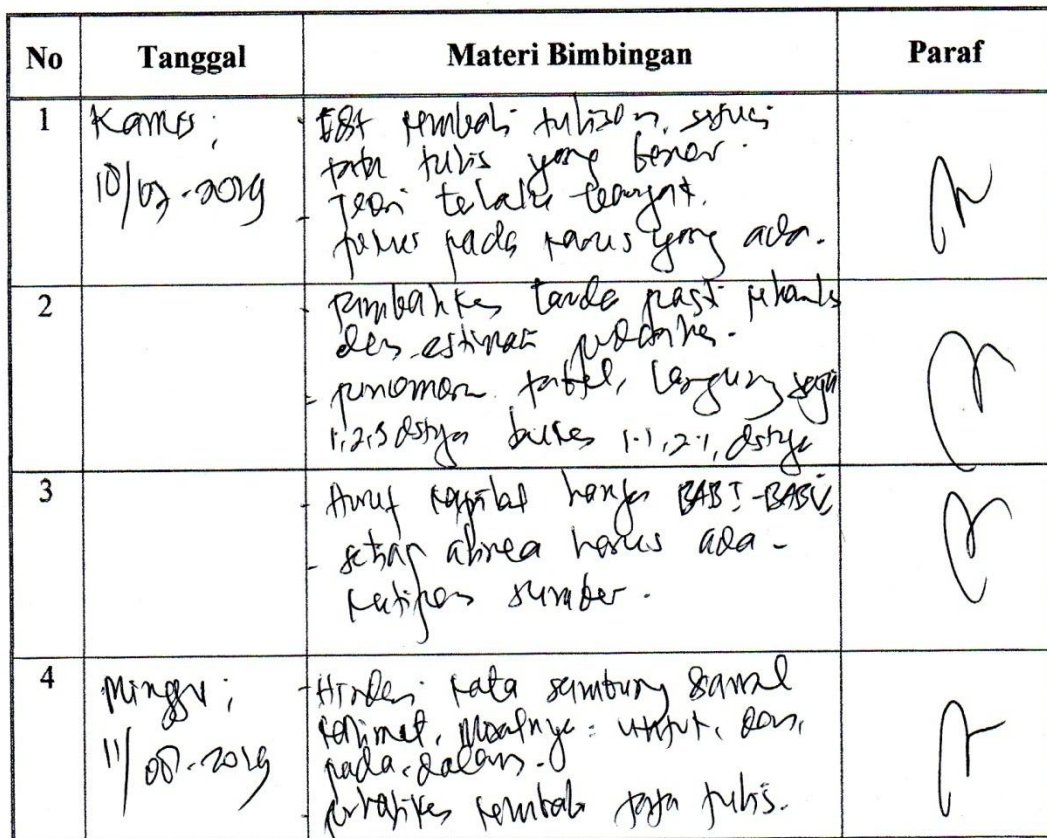 No Tanggal Materi Bimbingan Paraf
1 Kamis; - Edit kembali tulisan, sesuai
tata tulis yang benar.
10/07-2019 - terlalu
- fokus pada kasus yang ada.
2 - tambahkan tanda pasti
dan estimasi
- penomoran tabel, langsung
1,2,3 dstnya bukan 1.1, 2.1, dstnya
3 - Huruf kapital hanya BAB I - BAB V
- setiap alinea harus ada
kutipan sumber.
4 Minggu; - Hindari kata sambung diawal
kalimat, misalnya: untuk, dan,
11/08-2019 pada, dalam.
- perhatikan kembali tata tulis.